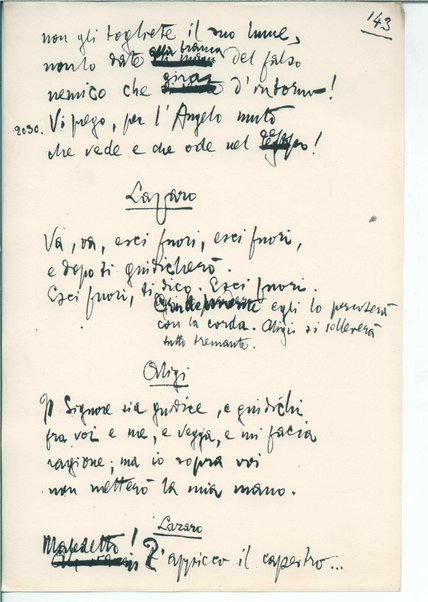 143
non gli togliete il suo lume,
non lo date alla branca del falso
nemico che gira d'intorno!
2030. Vi prego, per l'Angelo muto
che vede e che ode nel !
Lazaro
Va, va, esci fuori, esci fuori,
e dopo ti giudicherò.
Esci fuori, ti dico. Esci fuori.
egli lo percoterà
con la corda. Aligi si solleverà
tutto tremante.
Aligi
Il Signore sia giudice, e giudichi
fra voi e me, e vegga, e mi faccia
ragione; ma io sopra voi
non metterò la mia mano.
Lazaro
Maledetto!
T'appicco il capestro...